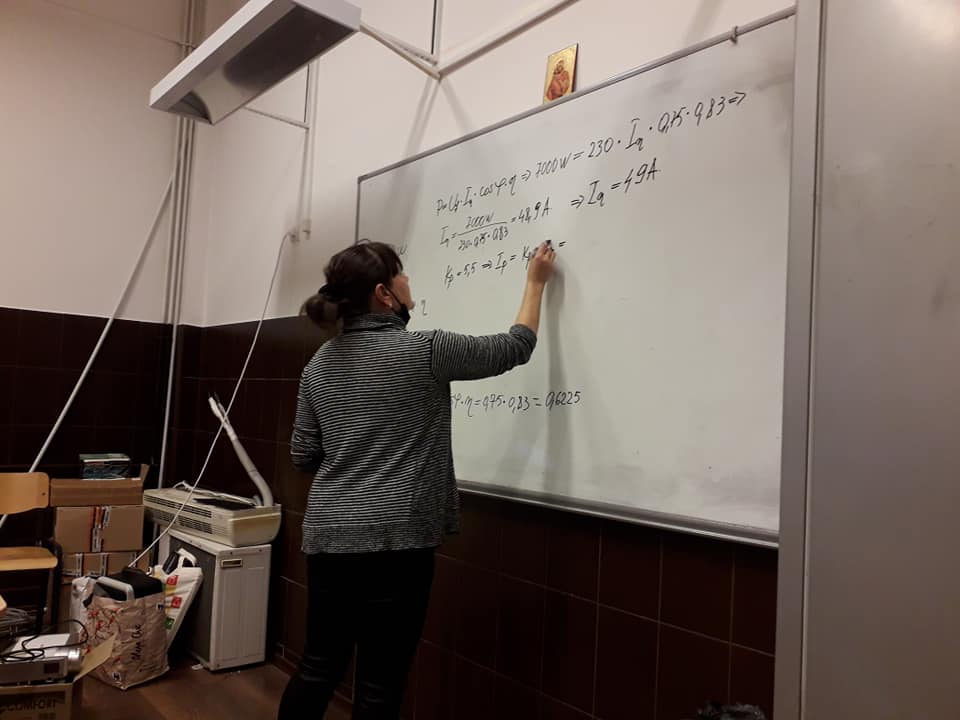 P=Uf·Iq·cosφ·η ⇒ 7000W = 230 · Iq · 0,75 · 0,83 ⇒
Iq = 7000W / 230·0,75·0,83 = 48,9A ⇒ Iq = 49A
Kp = 5,5 ⇒ Ip = Kp =
η
φ·η = 0,75 · 0,83 = 0,6225
COMFORT